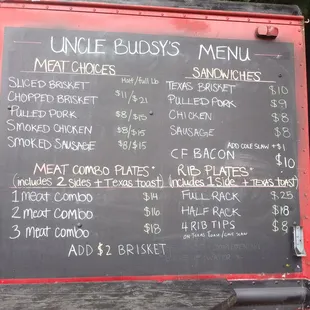 UNCLE BUDSY'S MENU
MEAT CHOICES Half/full Lb
SLICED BRISKET
CHOPPED BRISKET $11/$21
PULLED PORK $8/$15
SMOKED CHICKEN $8/$15
SMOKED SAUSAGE $8/$15
SANDWICHES
TEXAS BRISKET $10
PULLED PORK $9
CHICKEN $8
SAUSAGE $8
ADD COLE SLAW + $1
CF BACON $10
MEAT COMBO PLATES*
(includes 2 sides + Texas toast)
1 meat combo $14
2 meat combo $16
3 meat combo $18
ADD $2 BRISKET
RIB PLATES*
(Includes 1 Side + TEXAS toast)
FULL RACK $25
HALF RACK $18
4 RIB TIPS $8